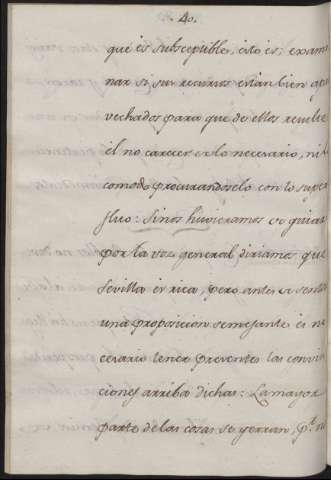 40.
que es subsceptible, esto es; exami
nar si sus recursos estan bien apro
vechados para que de ellos resulte
el no carecer de lo necesario, ni lo
comodo procurandoselo con lo super
fluo: Si nos huvieramos de guiar
por la voz general diriamos que
Sevilla es rica, pero antes de sentar
una proposicion semejante es ne
cesario tener presentes las
ciones arriba dichas: La mayor
parte de las cosas se yerran, p.r no